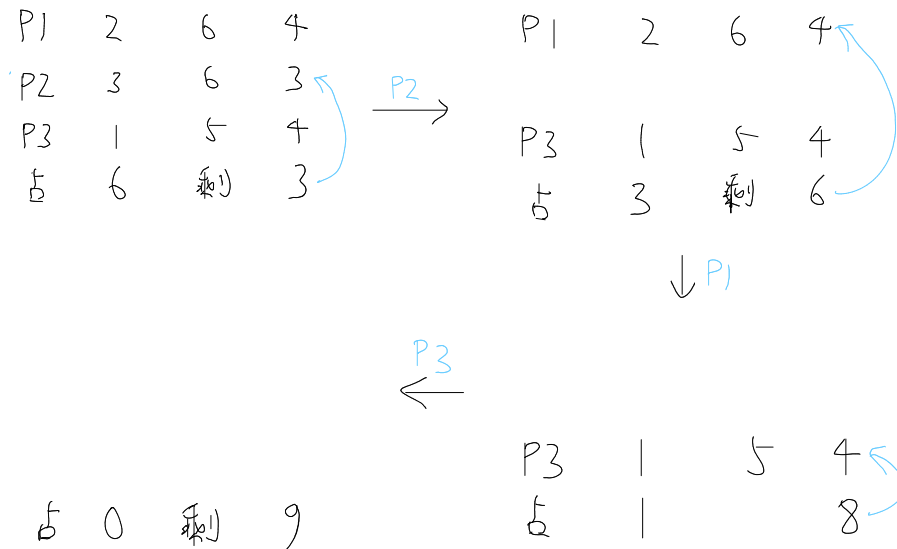 P1 2 6 4
P2 3 6 3
P3 1 5 4
占 6 剩 3
P2
P1 2 6 4
P3 1 5 4
占 3 剩 6
P1
P3 1 5 4
占 1 8
P3
占 0 剩 9